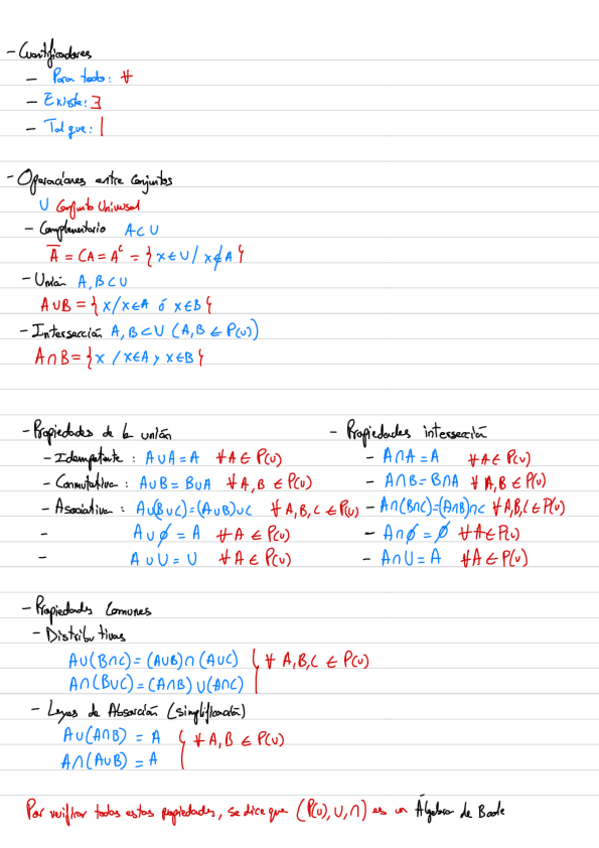 - Cuantificadores
- Para todo: ∀
- Existe: ∃
- Tal que: |
- Operaciones entre conjuntos
U Conjunto Universal
- Complementario A⊂U
A̅ = CA = Aᶜ = {x∈U / x∉A}
- Unión A,B⊂U
A∪B = {x/x∈A ó x∈B}
- Intersección A,B⊂U (A,B ∈ P(U))
A∩B = {x /x∈A y x∈B}
- Propiedades de la unión
- Idempotente : A∪A = A ∀A∈P(U)
- Conmutativa : A∪B = B∪A ∀A,B ∈ P(U)
- Asociativa : A∪(B∪C)=(A∪B)∪C ∀A,B,C ∈ P(U)
- A∪∅ = A ∀A ∈ P(U)
- A∪U = U ∀A ∈ P(U)
- Propiedades intersección
- A∩A = A ∀A∈P(U)
- A∩B = B∩A ∀A,B ∈ P(U)
- A∩(B∩C)=(A∩B)∩C ∀A,B,C ∈ P(U)
- A∩∅ = ∅ ∀A∈P(U)
- A∩U = A ∀A∈P(U)
- Propiedades Comunes
- Distributivas
A∪(B∩C) = (A∪B)∩(A∪C) ∀A,B,C ∈ P(U)
A∩(B∪C) = (A∩B)∪(A∩C)
- Leyes de Absorción (simplificación)
A∪(A∩B) = A ∀A,B ∈ P(U)
A∩(A∪B) = A
Por verificar todas estas propiedades, se dice que (P(U),∪,∩) es un Álgebra de Boole